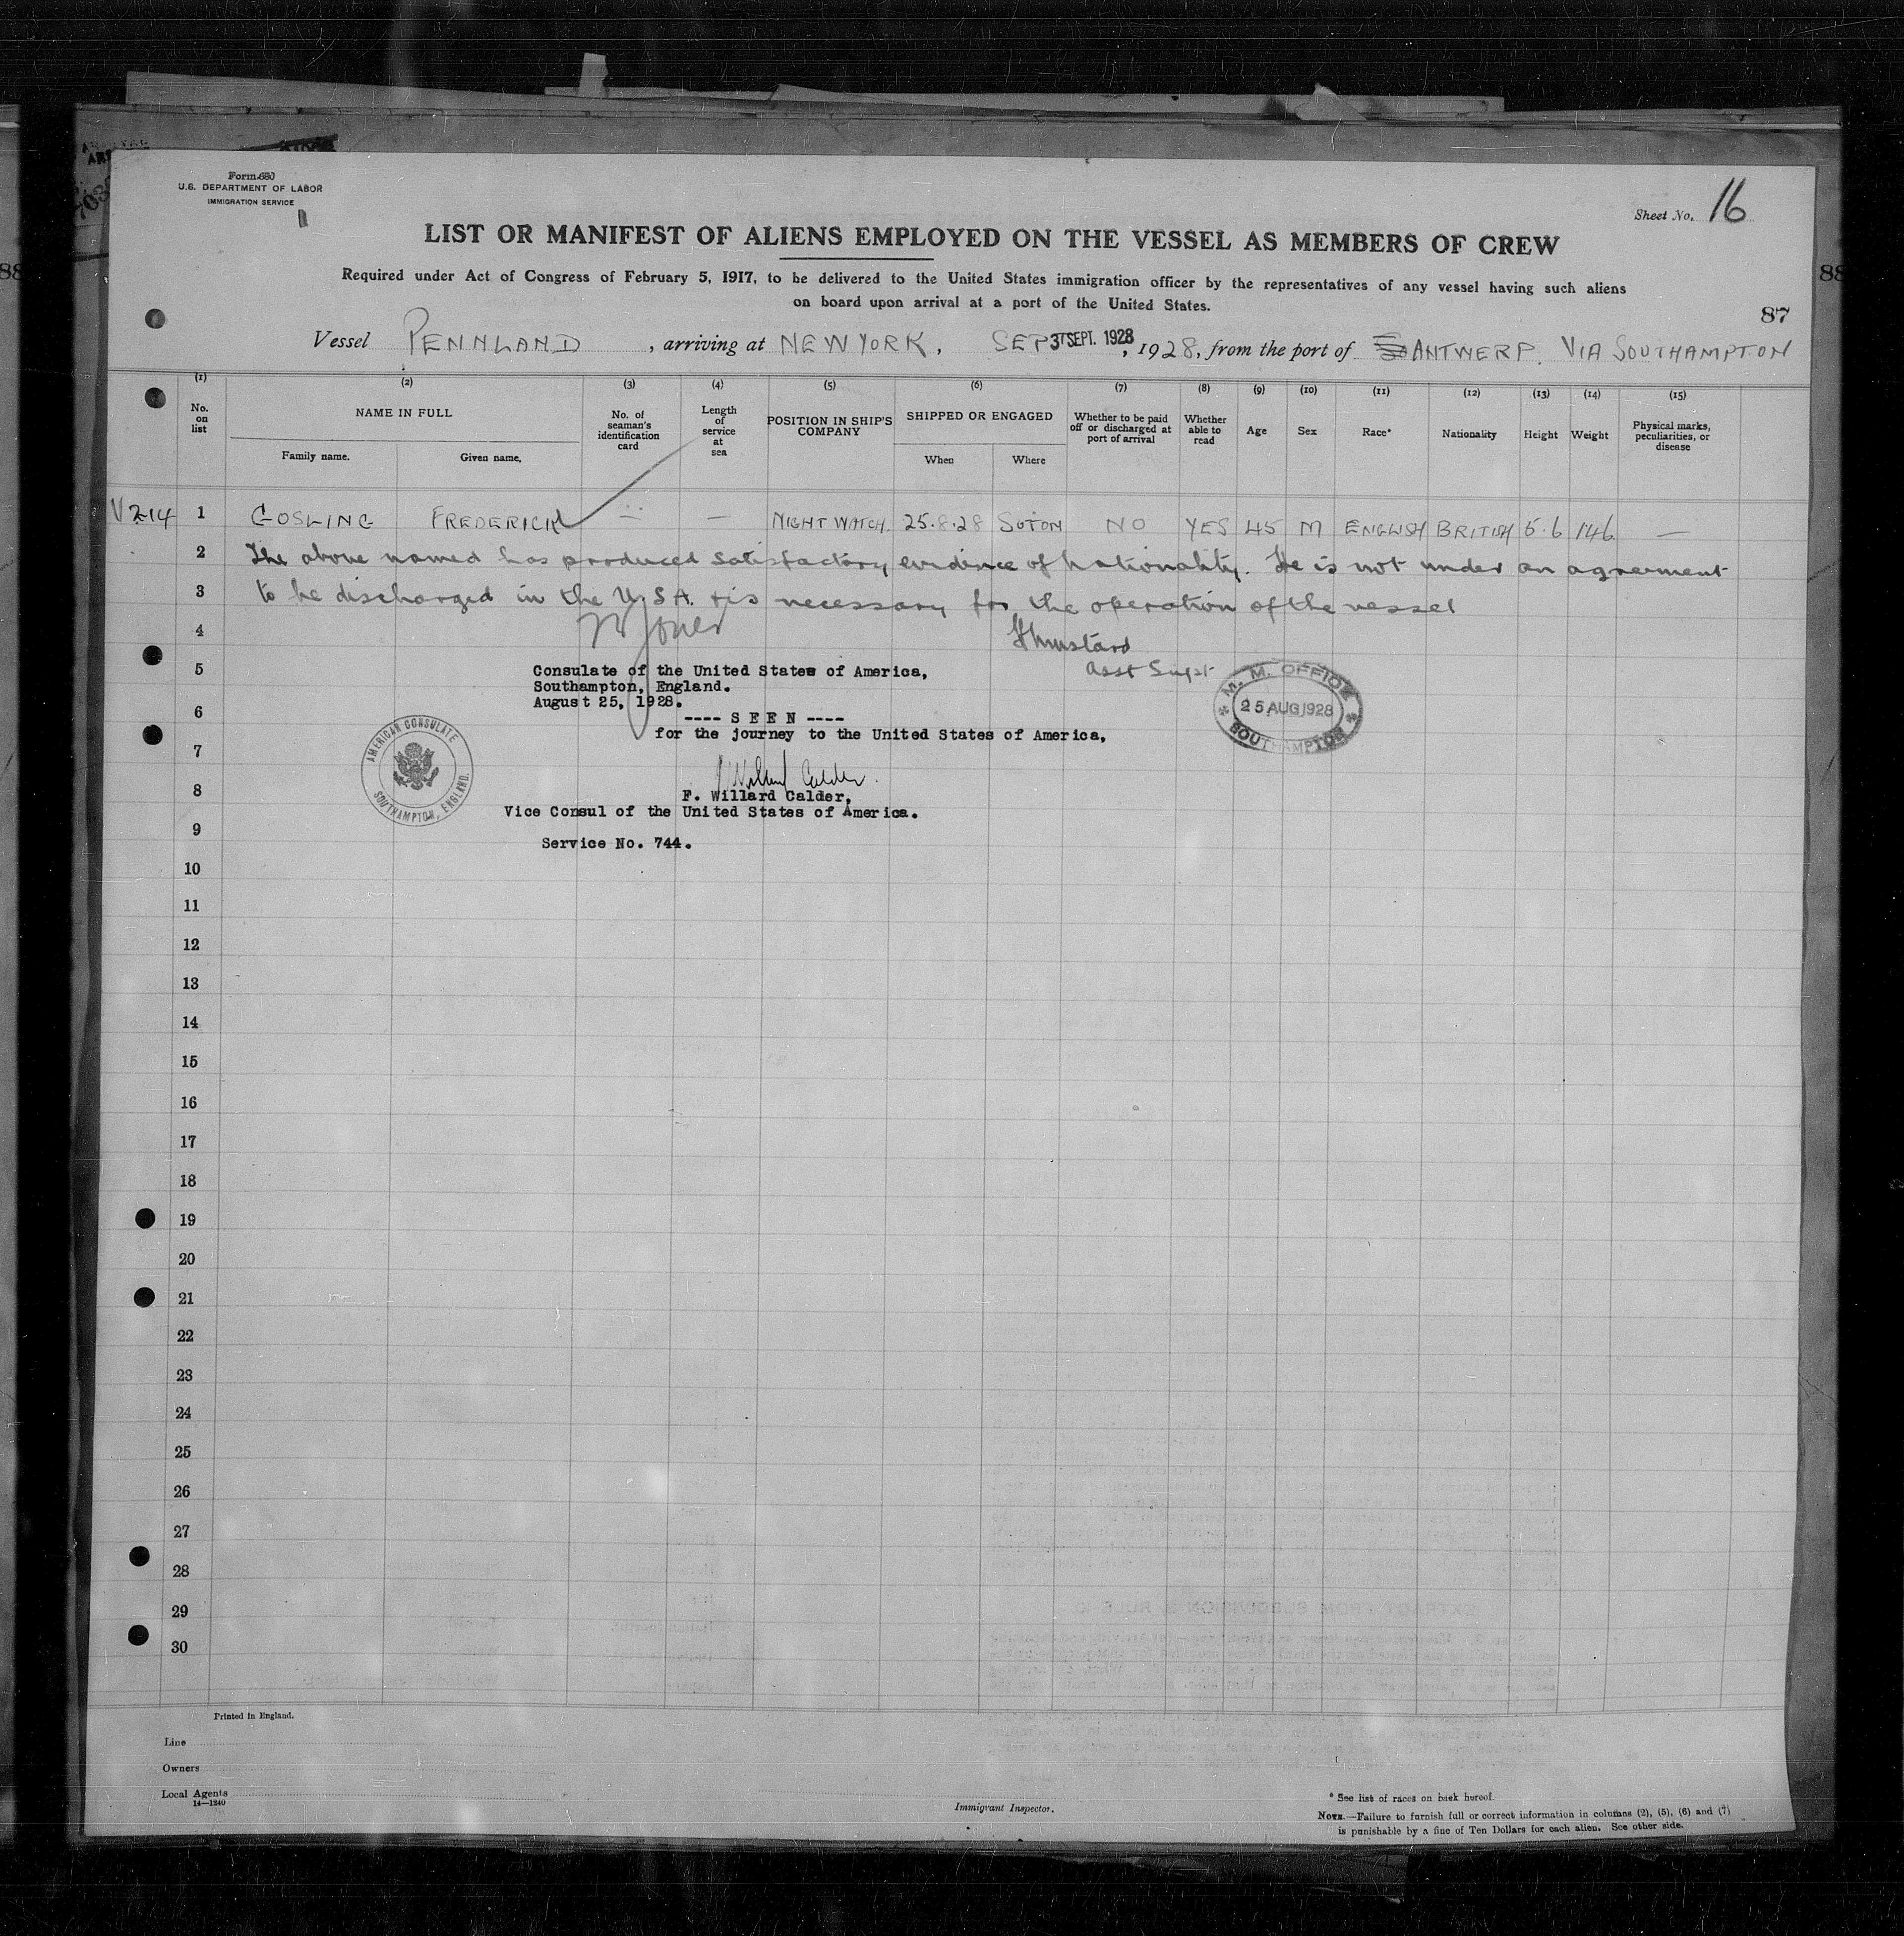 Form 680
U.S. DEPARTMENT OF LABOR
IMMIGRATION SERVICE
Sheet No. 16
LIST OR MANIFEST OF ALIENS EMPLOYED ON THE VESSEL AS MEMBERS OF CREW
Required under Act of Congress of February 5, 1917, to be delivered to the United States immigration officer by the representatives of any vessel having such aliens
on board upon arrival at a port of the United States.
87
88
Vessel PENNLAND , arriving at NEW YORK, SEPT 3 SEPT. 1928 , 1928, from the port of ANTWERP. VIA SOUTHAMPTON
(1) (2) (3) (4) (5) (6) (7) (8) (9) (10) (11) (12) (13) (14) (15)
No. on list NAME IN FULL Family name. Given name. No. of seaman's identification card Length of service at sea POSITION IN SHIP'S COMPANY SHIPPED OR ENGAGED When Where Whether to be paid off or discharged at port of arrival Whether able to read Age Sex Race* Nationality Height Weight Physical marks, peculiarities, or disease
V214 1 GOSLING FREDERICK — — NIGHT WATCH. 25.8.28 SOTON NO YES 45 M ENGLISH BRITISH 5.6 146 —
2 The above named has produced satisfactory evidence of nationality. He is not under an agreement
3 to be discharged in the U.S.A. + is necessary for the operation of the vessel
4 Jones Hmustard
Asst Supt
5 Consulate of the United States of America,
Southampton, England.
August 25, 1928.
M. M. OFFICE
25 AUG 1928
SOUTHAMPTON
6 ---- S E E N ----
for the journey to the United States of America,
7
AMERICAN CONSULATE
SOUTHAMPTON, ENGLAND.
F Willard Calder.
8 F. Willard Calder,
Vice Consul of the United States of America.
9
Service No. 744.
10
11
12
13
14
15
16
17
18
19
20
21
22
23
24
25
26
27
28
29
30
Printed in England.
Line
Owners
Local Agents
14—1240
Immigrant Inspector.
* See list of races on back hereof.
NOTE.—Failure to furnish full or correct information in columns (2), (5), (6) and (7)
is punishable by a fine of Ten Dollars for each alien. See other side.